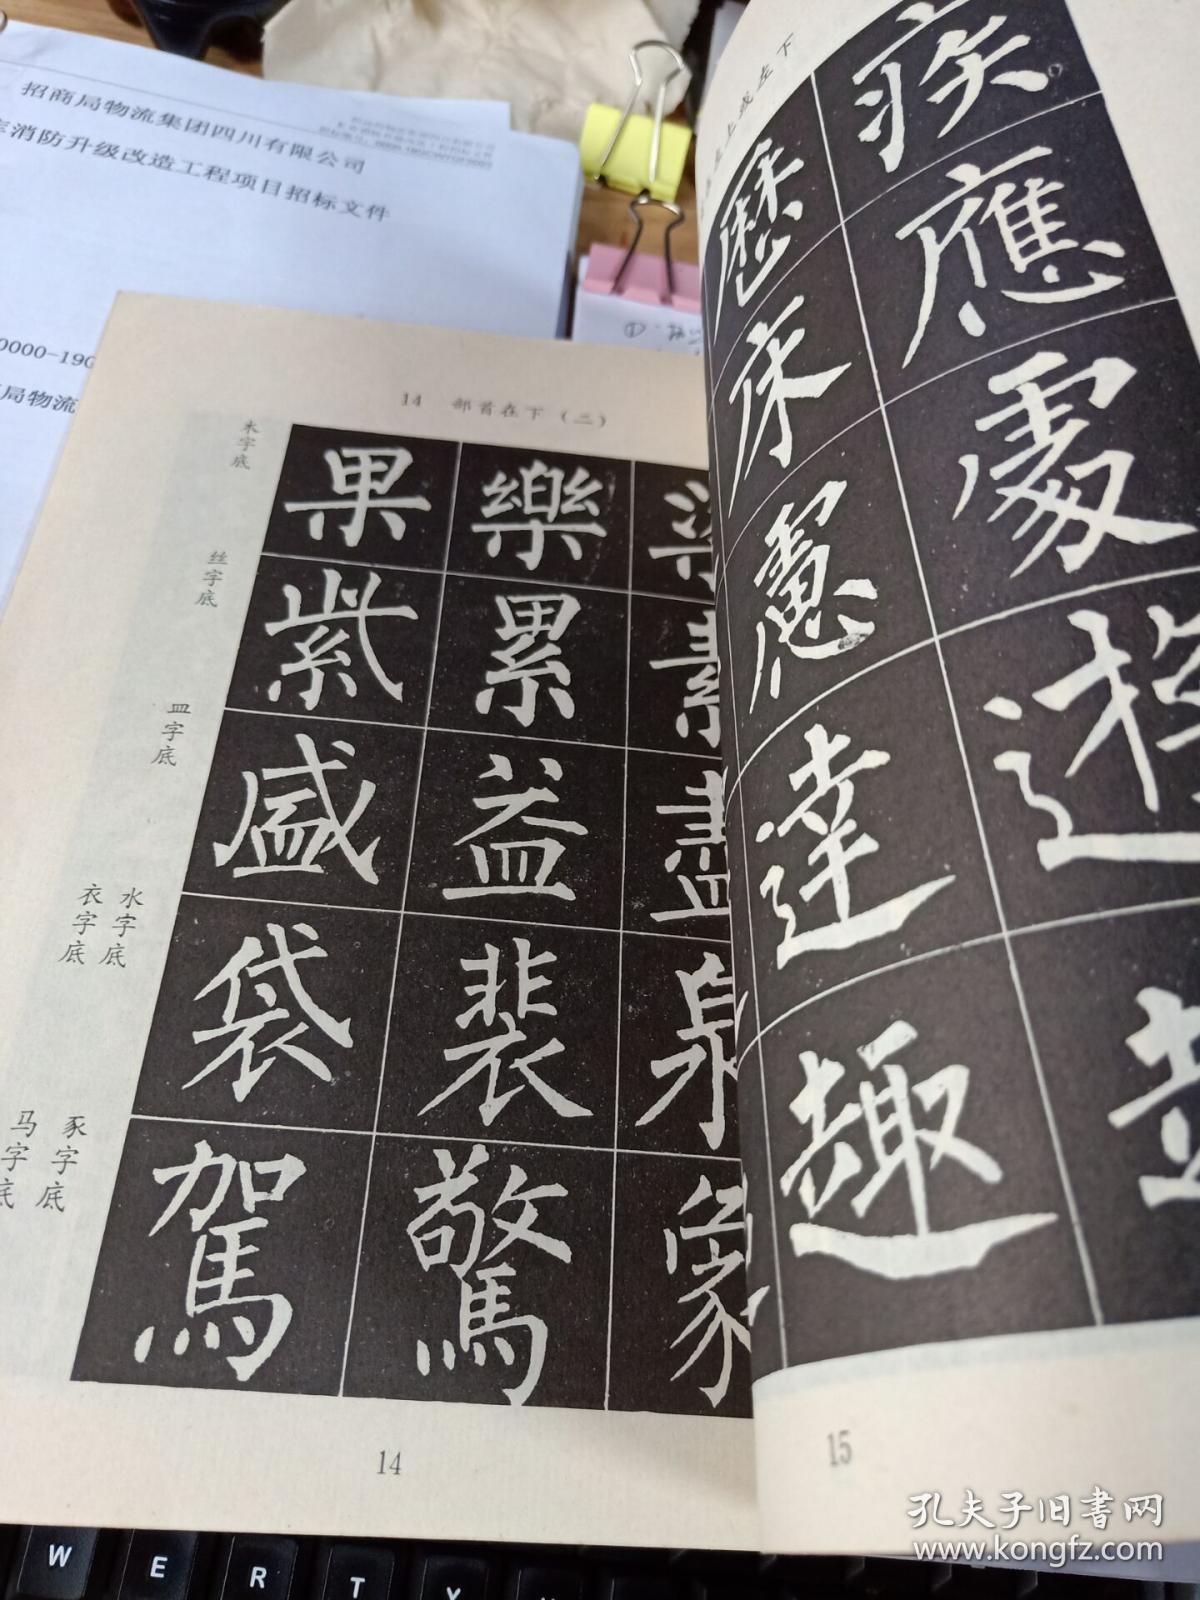 招商局物流集团四川有限公司
消防升级改造工程项目招标文件
0000-190
局物流
14 部首在下（二）
木字底
果 樂
丝字底
紫 累 素
皿字底
盛 益 盡
衣字底 水字底
袋 裴 泉
马字底 豕字底
駕 驚 象
14
左上或左下
疾
歷 應
床 處
慮
達 遊
趣
15
孔夫子旧書网
www.kongfz.com
W E R T Y